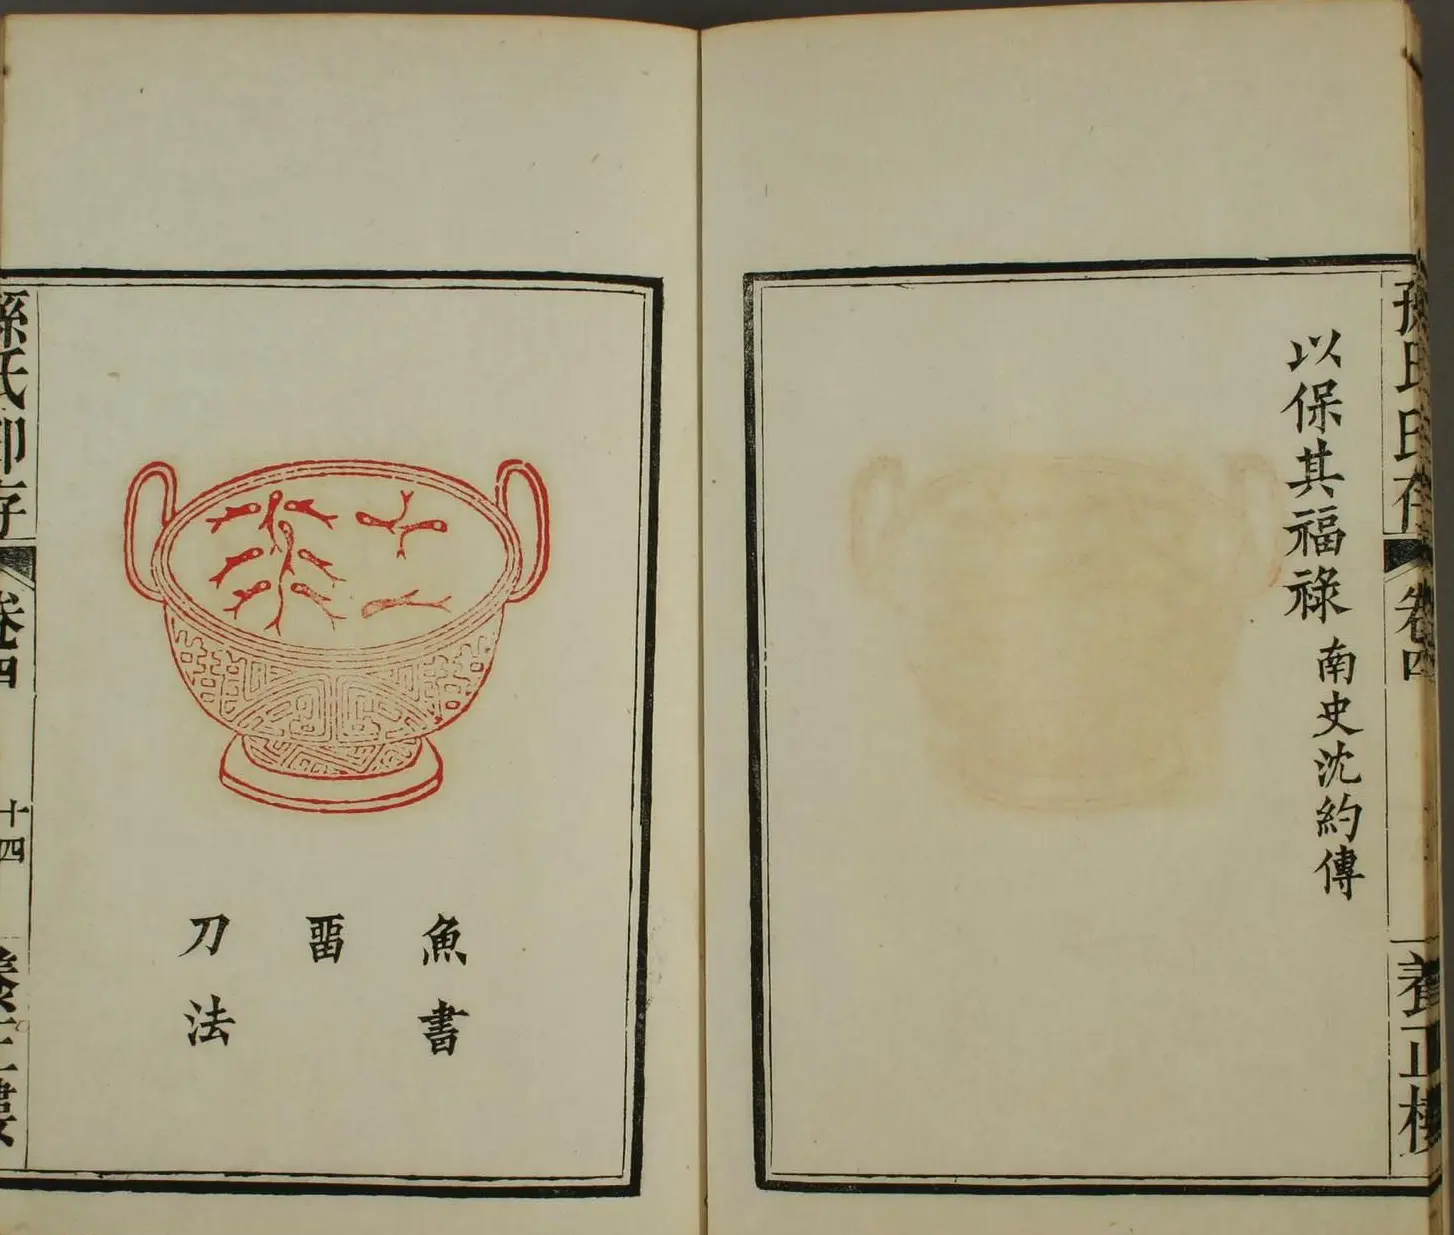 孫氏印存 卷四 養正樓
以保其福祿
南史沈約傳
魚書
畱
刀法
孫氏印存 卷四 十四 養正樓